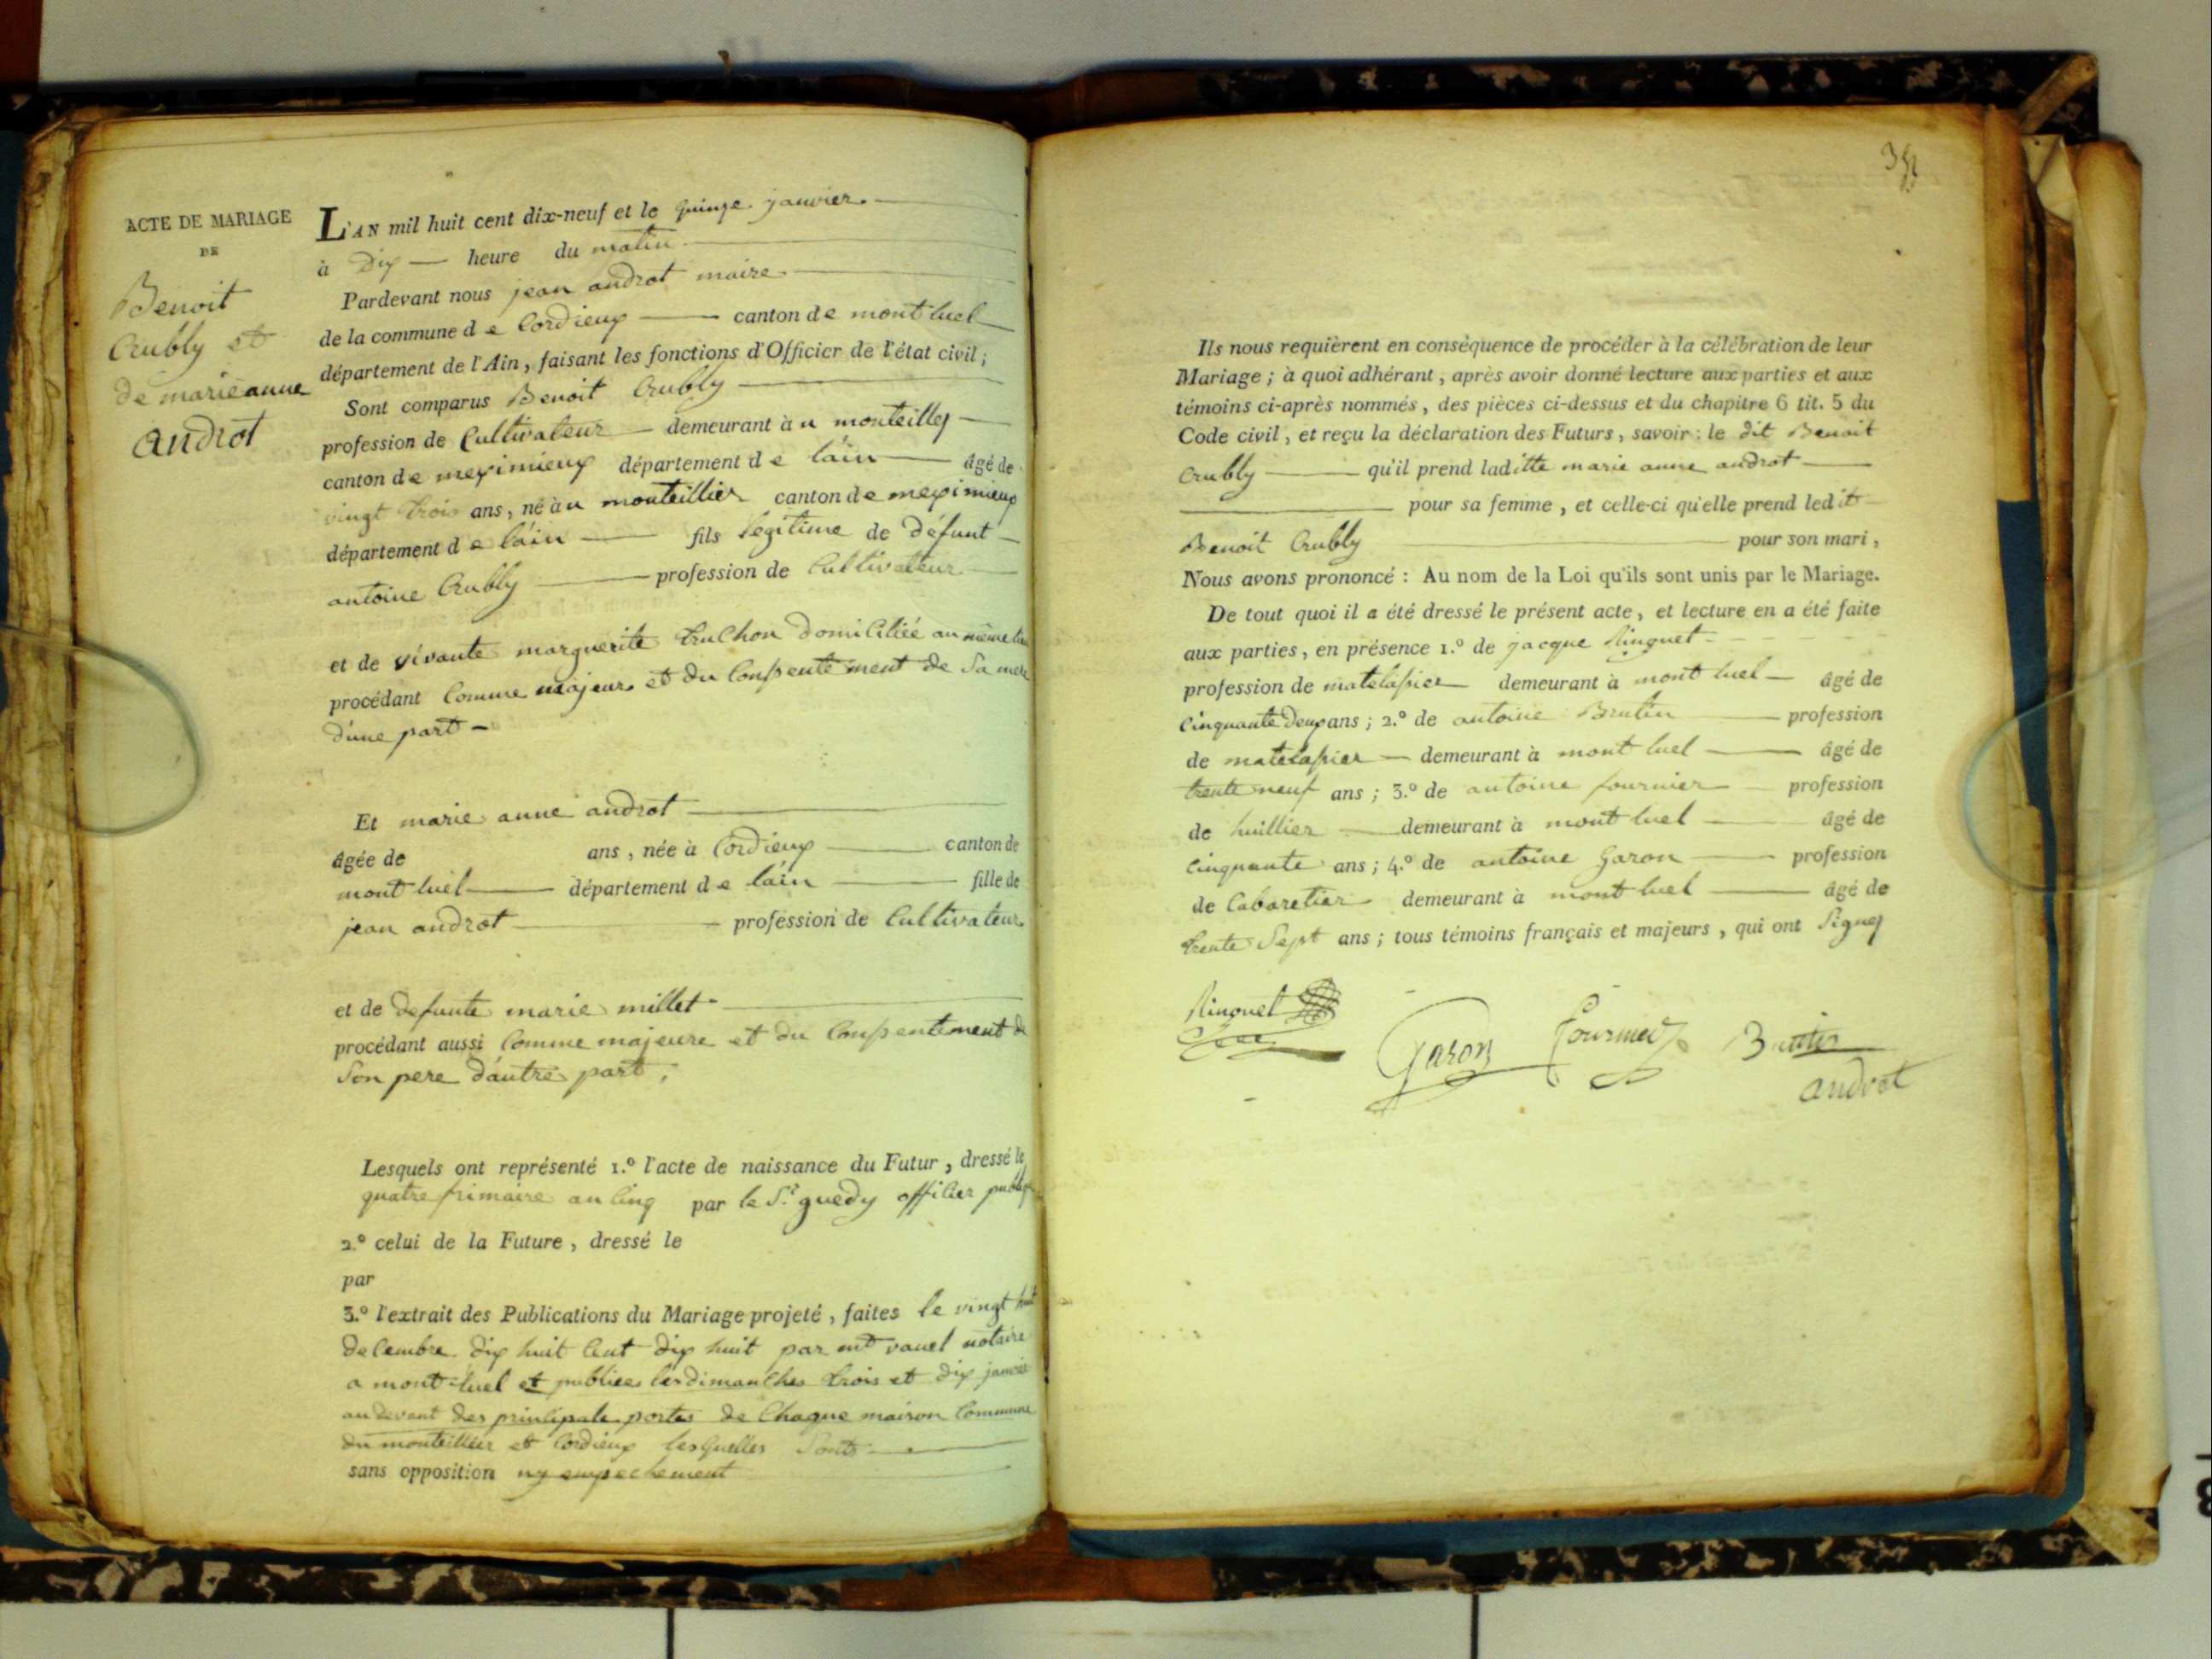 ACTE DE MARIAGE
DE
Benoit
Crubly et
de marie anne
androt
L'AN mil huit cent dix-neuf et le quinze janvier.
à Dix heure du matin
Pardevant nous jean androt maire
de la commune de Cordieux canton de mont luel
département de l'Ain, faisant les fonctions d'Officier de l'état civil;
Sont comparus Benoit Crubly
profession de Cultivateur demeurant àu monteilley
canton de meximieux département de l'ain âgé de
vingt trois ans, né àu monteillier canton de meximieux
département de l'ain fils légitime de défunt
antoine Crubly profession de Cultivateur
et de vivante marguerite truchon domiciliée au même lieu
procédant Comme majeur et du Consentement de Sa mere
d'une part
Et marie anne androt
âgée de ans, née à Cordieux canton de
mont luel département de l'ain fille de
jean androt profession de Cultivateur
et de defunte marie millet
procédant aussi Comme majeure et du Consentement de
Son pere d'autre part,
Lesquels ont représenté 1.º l'acte de naissance du Futur, dressé le
quatre frimaire an cinq par le Sr. guedy officier public
2.º celui de la Future, dressé le
par
3.º l'extrait des Publications du Mariage projeté, faites le vingt huit
decembre dix huit cent dix huit par mt vauel notaire
a mont-luel et publiées les dimanches trois et dix janvier
au devant des principale portes de Chaque maison Commune
du monteillier et Cordieux lesquelles Sont
sans opposition ny empechement
Ils nous requièrent en conséquence de procéder à la célébration de leur
Mariage; à quoi adhérant, après avoir donné lecture aux parties et aux
témoins ci-après nommés, des pièces ci-dessus et du chapitre 6 tit. 5 du
Code civil, et reçu la déclaration des Futurs, savoir: le dit Benoit
Crubly qu'il prend laditte marie anne androt
pour sa femme, et celle-ci qu'elle prend ledit
Benoit Crubly pour son mari,
Nous avons prononcé: Au nom de la Loi qu'ils sont unis par le Mariage.
De tout quoi il a été dressé le présent acte, et lecture en a été faite
aux parties, en présence 1.º de jacque Rinquet
profession de matelassier demeurant à mont luel âgé de
Cinquante deux ans; 2.º de antoine Brutin profession
de matelassier demeurant à mont luel âgé de
trente neuf ans; 3.º de antoine fournier profession
de huillier demeurant à mont luel âgé de
Cinquante ans; 4.º de antoine Garon profession
de Cabaretier demeurant à mont luel âgé de
trente Sept ans; tous témoins français et majeurs, qui ont Signez
Rinquet
Garon Fournier Brutin
androt